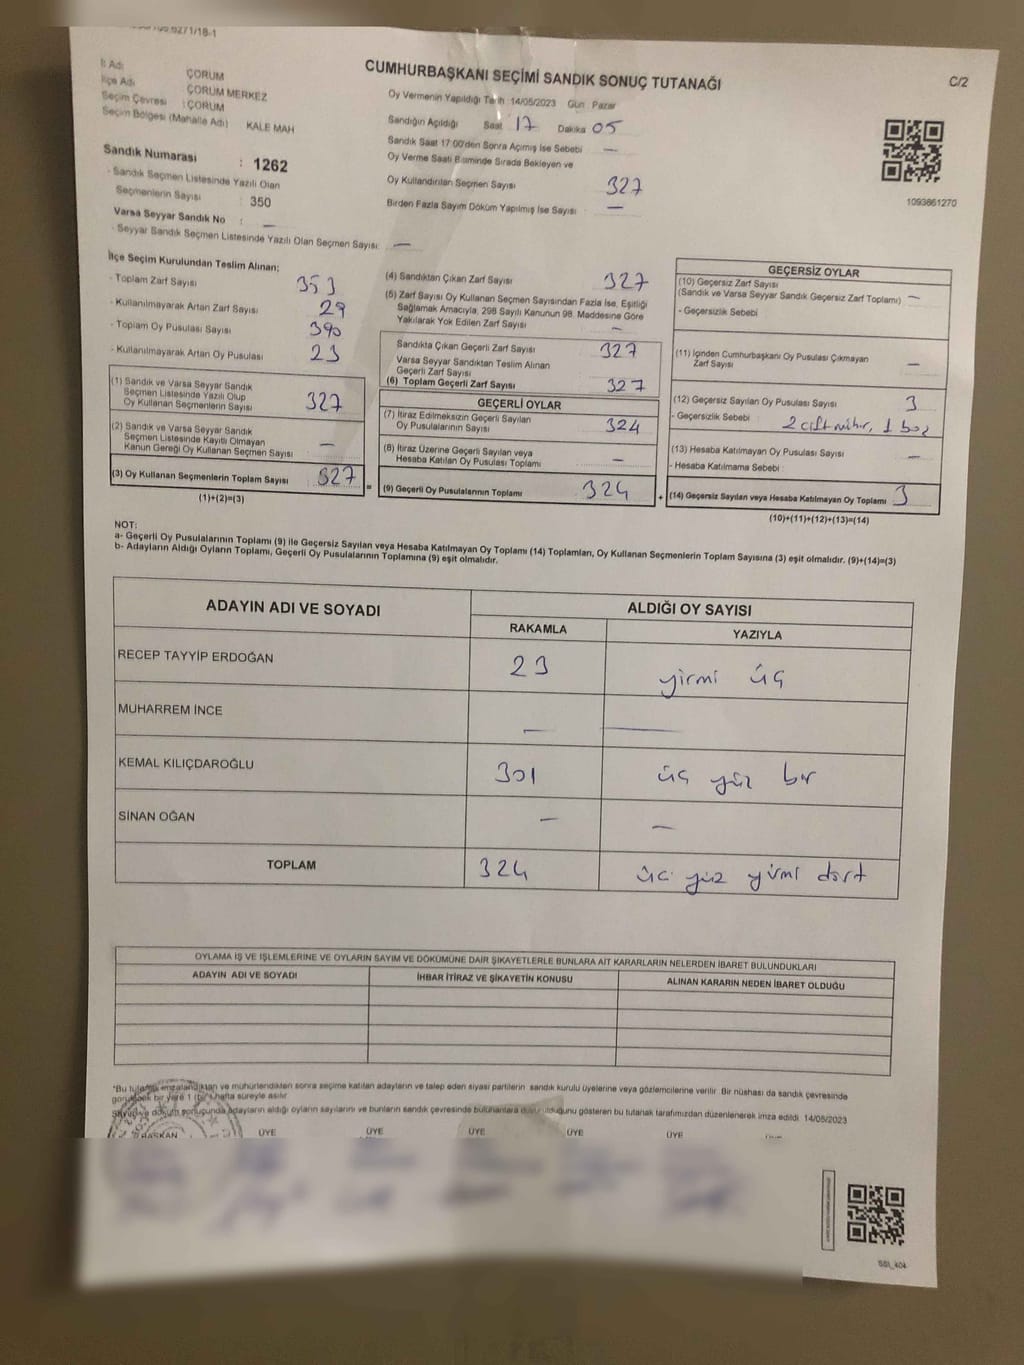 CUMHURBAŞKANI SEÇİMİ SANDIK SONUÇ TUTANAĞI
C/2
İl Adı ÇORUM
İlçe Adı ÇORUM MERKEZ
Seçim Çevresi : ÇORUM
Seçim Bölgesi (Mahalle Adı) KALE MAH
Sandık Numarası : 1262
- Sandık Seçmen Listesinde Yazılı Olan
Seçmenlerin Sayısı : 350
Varsa Seyyar Sandık No : —
- Seyyar Sandık Seçmen Listesinde Yazılı Olan Seçmen Sayısı: —
Oy Vermenin Yapıldığı Tarih 14/05/2023 Gün Pazar
Sandığın Açıldığı Saat 17 Dakika 05
Sandık Saat 17:00'den Sonra Açılmış İse Sebebi —
Oy Verme Saati Bitiminde Sırada Bekleyen ve
Oy Kullandırılan Seçmen Sayısı 327
Birden Fazla Sayım Döküm Yapılmış İse Sayısı —
1093861270
İlçe Seçim Kurulundan Teslim Alınan;
- Toplam Zarf Sayısı 353
- Kullanılmayarak Artan Zarf Sayısı 29
- Toplam Oy Pusulası Sayısı 390
- Kullanılmayarak Artan Oy Pusulası 23
(1) Sandık ve Varsa Seyyar Sandık
Seçmen Listesinde Yazılı Olup
Oy Kullanan Seçmenlerin Sayısı 327
(2) Sandık ve Varsa Seyyar Sandık
Seçmen Listesinde Kayıtlı Olmayan
Kanun Gereği Oy Kullanan Seçmen Sayısı —
(3) Oy Kullanan Seçmenlerin Toplam Sayısı 327
(1)+(2)=(3)
(4) Sandıktan Çıkan Zarf Sayısı 327
(5) Zarf Sayısı Oy Kullanan Seçmen Sayısından Fazla İse, Eşitliği
Sağlamak Amacıyla, 298 Sayılı Kanunun 98. Maddesine Göre
Yakılarak Yok Edilen Zarf Sayısı —
Sandıkta Çıkan Geçerli Zarf Sayısı 327
Varsa Seyyar Sandıktan Teslim Alınan
Geçerli Zarf Sayısı
(6) Toplam Geçerli Zarf Sayısı 327
GEÇERLİ OYLAR
(7) İtiraz Edilmeksizin Geçerli Sayılan
Oy Pusulalarının Sayısı 324
(8) İtiraz Üzerine Geçerli Sayılan veya
Hesaba Katılan Oy Pusulası Toplamı —
= (9) Geçerli Oy Pusulalarının Toplamı 324
GEÇERSİZ OYLAR
(10) Geçersiz Zarf Sayısı
(Sandık ve Varsa Seyyar Sandık Geçersiz Zarf Toplamı) —
- Geçersizlik Sebebi
(11) İçinden Cumhurbaşkanı Oy Pusulası Çıkmayan
Zarf Sayısı —
(12) Geçersiz Sayılan Oy Pusulası Sayısı 3
- Geçersizlik Sebebi : 2 çift mühür, 1 boş
(13) Hesaba Katılmayan Oy Pusulası Sayısı —
- Hesaba Katılmama Sebebi :
+ (14) Geçersiz Sayılan veya Hesaba Katılmayan Oy Toplamı 3
(10)+(11)+(12)+(13)=(14)
NOT:
a- Geçerli Oy Pusulalarının Toplamı (9) ile Geçersiz Sayılan veya Hesaba Katılmayan Oy Toplamı (14) Toplamları, Oy Kullanan Seçmenlerin Toplam Sayısına (3) eşit olmalıdır. (9)+(14)=(3)
b- Adayların Aldığı Oyların Toplamı, Geçerli Oy Pusulalarının Toplamına (9) eşit olmalıdır.
ADAYIN ADI VE SOYADI ALDIĞI OY SAYISI
RAKAMLA YAZIYLA
RECEP TAYYİP ERDOĞAN 23 yirmi üç
MUHARREM İNCE — —
KEMAL KILIÇDAROĞLU 301 üç yüz bir
SİNAN OĞAN — —
TOPLAM 324 üç yüz yirmi dört
OYLAMA İŞ VE İŞLEMLERİNE VE OYLARIN SAYIM VE DÖKÜMÜNE DAİR ŞİKAYETLERLE BUNLARA AİT KARARLARIN NELERDEN İBARET BULUNDUKLARI
ADAYIN ADI VE SOYADI İHBAR İTİRAZ VE ŞİKAYETİN KONUSU ALINAN KARARIN NEDEN İBARET OLDUĞU
*Bu tutanak imzalandıktan ve mühürlendikten sonra seçime katılan adayların ve talep eden siyasi partilerin sandık kurulu üyelerine veya gözlemcilerine verilir. Bir nüshası da sandık çevresinde
görülecek bir yere 1 (bir) hafta süreyle asılır.
Sayım ve döküm sonucunda adayların aldığı oyların sayılarını ve bunların sandık çevresinde bulunanlara duyurulduğunu gösteren bu tutanak tarafımızdan düzenlenerek imza edildi. 14/05/2023
BAŞKAN ÜYE ÜYE ÜYE ÜYE ÜYE